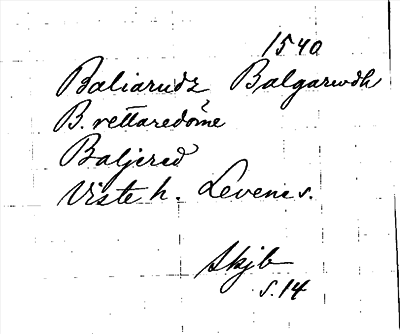 1540
Baliarudz Balgarudh
B. rettaredöme
Baljered
Viste h. Levene s.
Skjb
s. 14